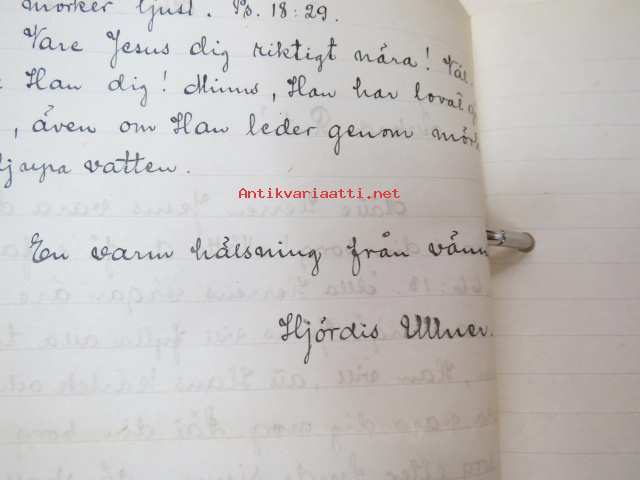 mörker ljust. Ps. 18:29.
Vare Jesus dig riktigt nära! Väl
Han dig! Minns, Han har lovat
, även om Han leder genom mörk
djupa vatten.
Antikvariaatti.net
En varm hälsning från vänn
Hjördis Ullner.